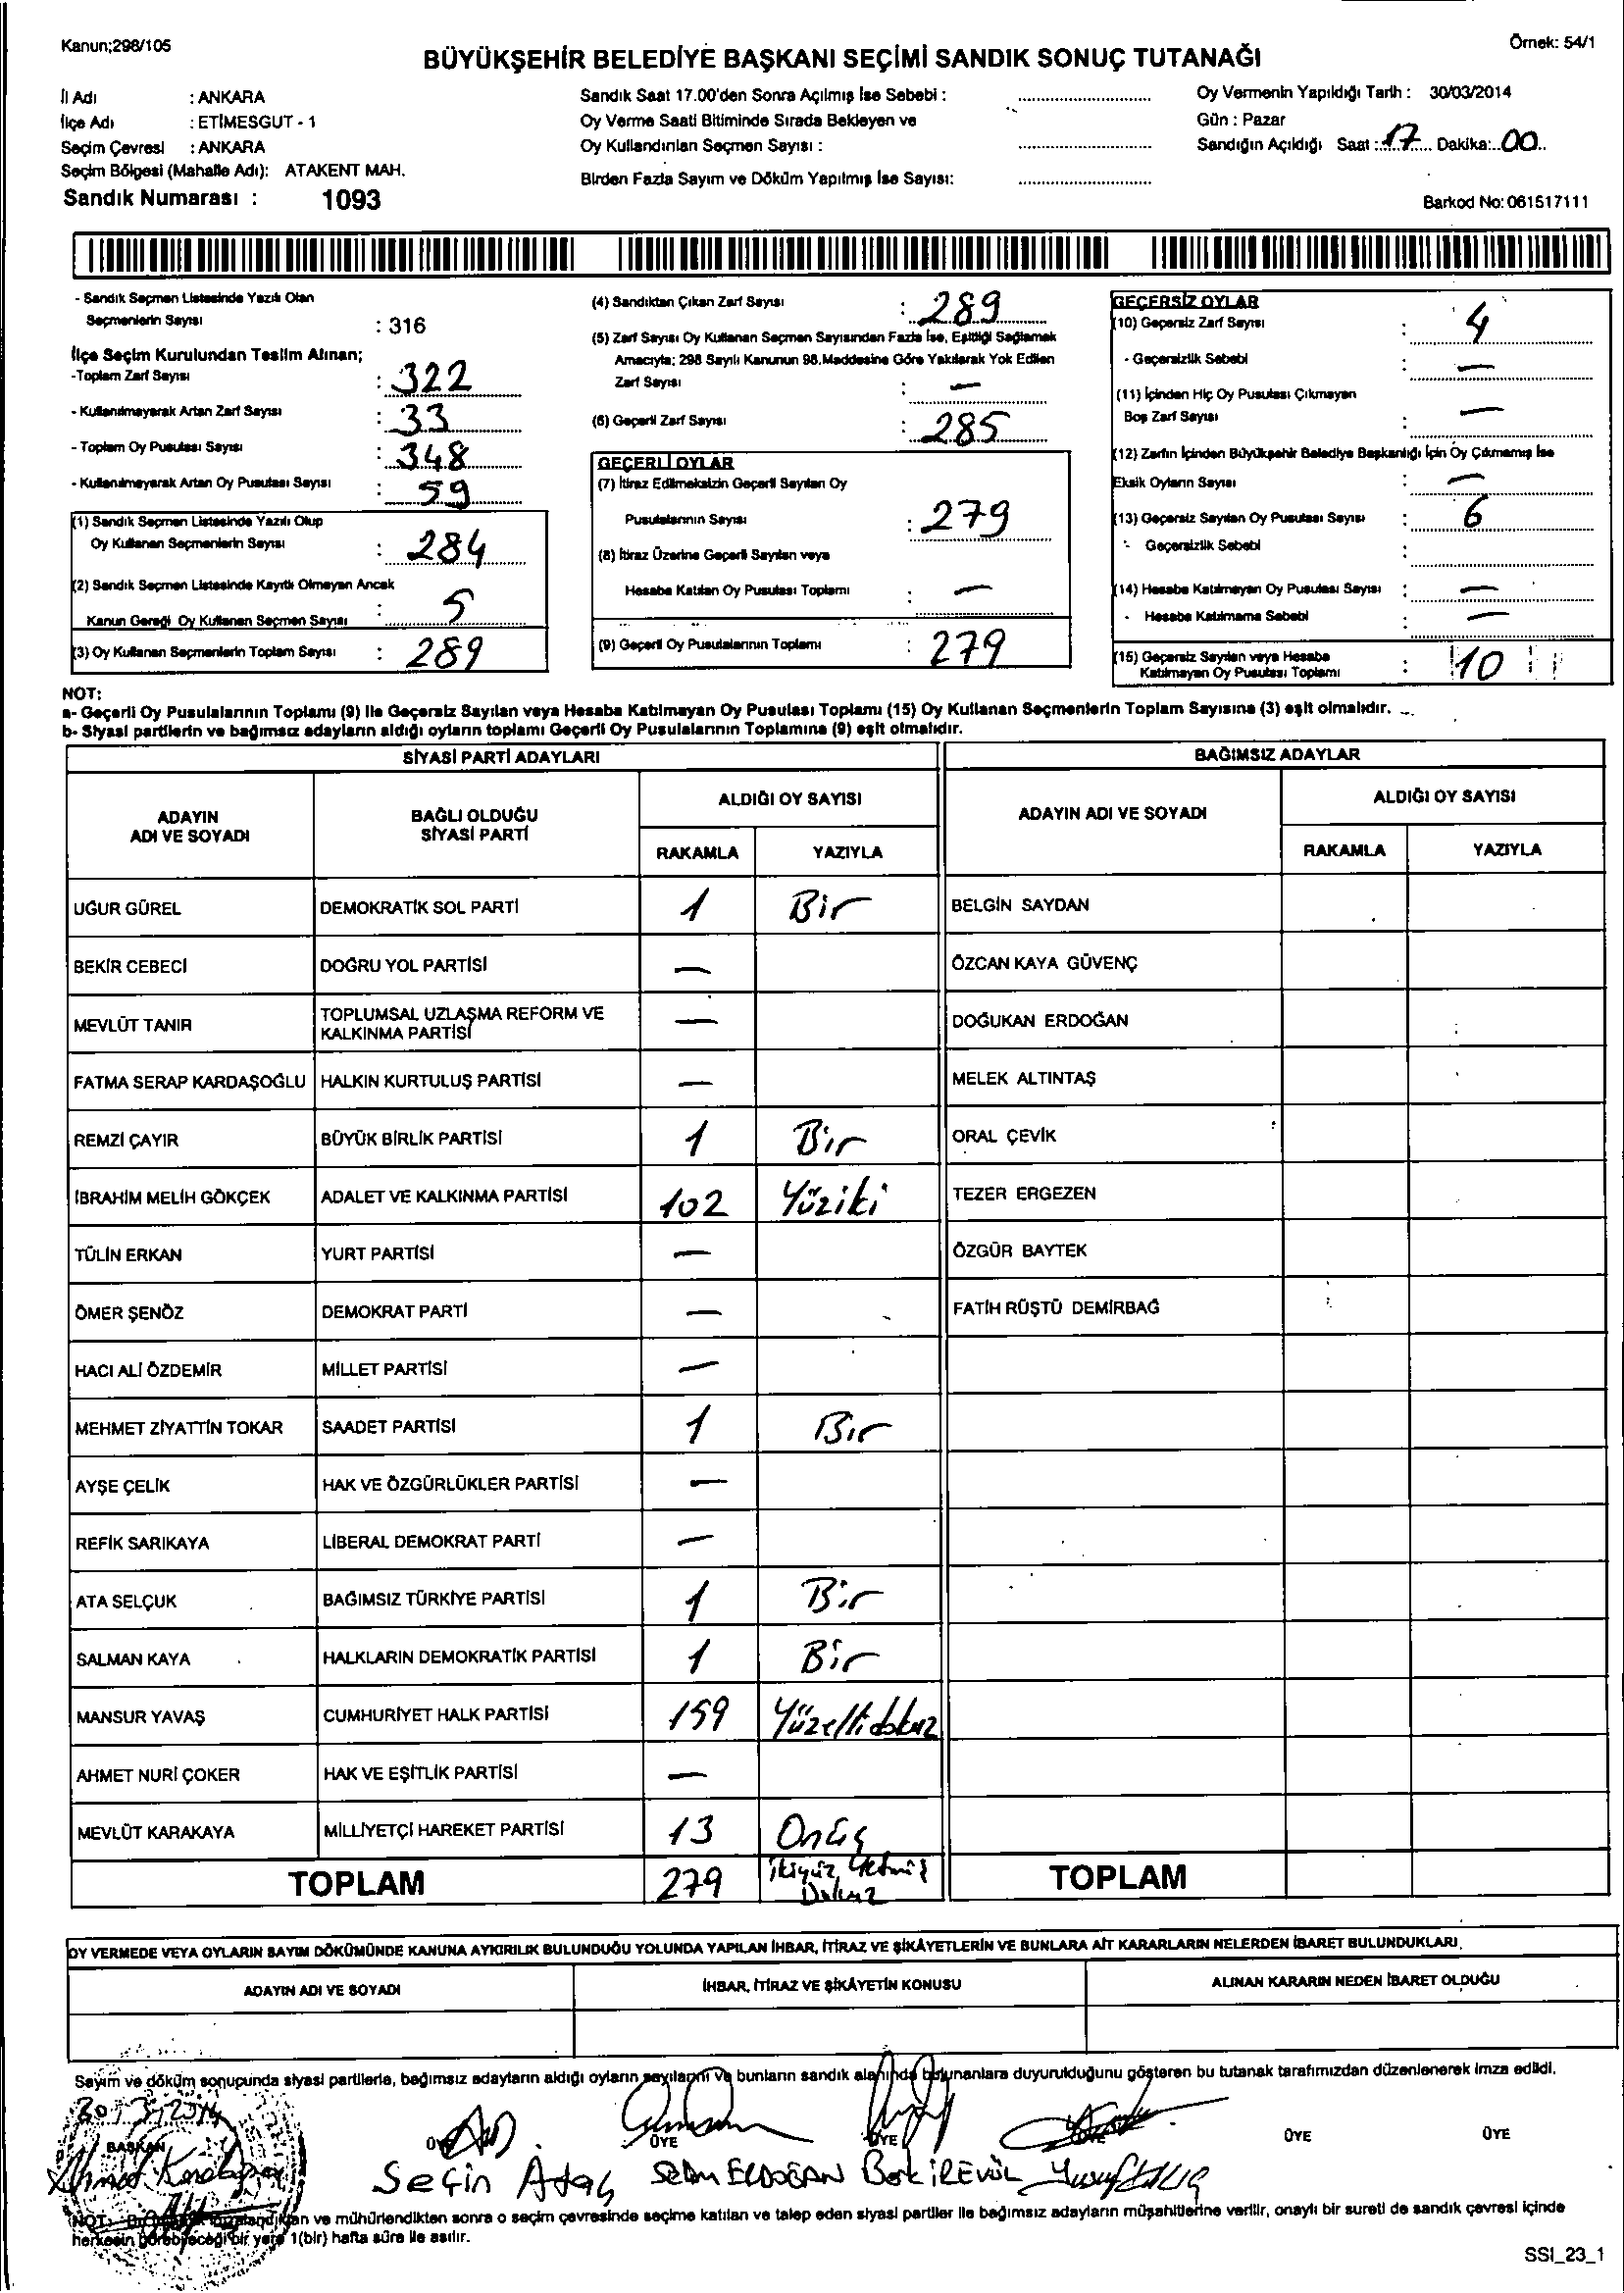 Kanun;298/105
Örnek: 54/1
BÜYÜKŞEHİR BELEDİYE BAŞKANI SEÇİMİ SANDIK SONUÇ TUTANAĞI
İl Adı : ANKARA
İlçe Adı : ETİMESGUT - 1
Seçim Çevresi : ANKARA
Seçim Bölgesi (Mahalle Adı): ATAKENT MAH.
Sandık Numarası : 1093
Sandık Saat 17.00'den Sonra Açılmış İse Sebebi :
Oy Verme Saati Bitiminde Sırada Bekleyen ve
Oy Kullandırılan Seçmen Sayısı :
Birden Fazla Sayım ve Döküm Yapılmış İse Sayısı:
Oy Vermenin Yapıldığı Tarih : 30/03/2014
Gün : Pazar
Sandığın Açıldığı Saat : 17 Dakika: 00
Barkod No: 061517111
- Sandık Seçmen Listesinde Yazılı Olan
Seçmenlerin Sayısı : 316
İlçe Seçim Kurulundan Teslim Alınan;
-Toplam Zarf Sayısı : 322
- Kullanılmayarak Artan Zarf Sayısı : 33
- Toplam Oy Pusulası Sayısı : 348
- Kullanılmayarak Artan Oy Pusulası Sayısı : 59
(1) Sandık Seçmen Listesinde Yazılı Olup
Oy Kullanan Seçmenlerin Sayısı : 284
(2) Sandık Seçmen Listesinde Kayıtlı Olmayan Ancak
Kanun Gereği Oy Kullanan Seçmen Sayısı : 5
(3) Oy Kullanan Seçmenlerin Toplam Sayısı : 289
(4) Sandıktan Çıkan Zarf Sayısı : 289
(5) Zarf Sayısı Oy Kullanan Seçmen Sayısından Fazla İse, Eşitliği Sağlamak
Amacıyla; 298 Sayılı Kanunun 98.Maddesine Göre Yakılarak Yok Edilen
Zarf Sayısı : —
(6) Geçerli Zarf Sayısı : 285
GEÇERLİ OYLAR
(7) İtiraz Edilmeksizin Geçerli Sayılan Oy
Pusulalarının Sayısı : 279
(8) İtiraz Üzerine Geçerli Sayılan veya
Hesaba Katılan Oy Pusulası Toplamı : —
(9) Geçerli Oy Pusulalarının Toplamı : 279
GEÇERSİZ OYLAR
(10) Geçersiz Zarf Sayısı : 4
- Geçersizlik Sebebi : —
(11) İçinden Hiç Oy Pusulası Çıkmayan
Boş Zarf Sayısı : —
(12) Zarfın İçinden Büyükşehir Belediye Başkanlığı İçin Oy Çıkmamış İse
Eksik Oyların Sayısı : —
(13) Geçersiz Sayılan Oy Pusulası Sayısı : 6
- Geçersizlik Sebebi :
(14) Hesaba Katılmayan Oy Pusulası Sayısı : —
- Hesaba Katılmama Sebebi : —
(15) Geçersiz Sayılan veya Hesaba
Katılmayan Oy Pusulası Toplamı : 10
NOT:
a- Geçerli Oy Pusulalarının Toplamı (9) ile Geçersiz Sayılan veya Hesaba Katılmayan Oy Pusulası Toplamı (15) Oy Kullanan Seçmenlerin Toplam Sayısına (3) eşit olmalıdır.
b- Siyasi partilerin ve bağımsız adayların aldığı oyların toplamı Geçerli Oy Pusulalarının Toplamına (9) eşit olmalıdır.
SİYASİ PARTİ ADAYLARI
BAĞIMSIZ ADAYLAR
ADAYIN ADI VE SOYADI
BAĞLI OLDUĞU SİYASİ PARTİ
ALDIĞI OY SAYISI
RAKAMLA YAZIYLA
ADAYIN ADI VE SOYADI
ALDIĞI OY SAYISI
RAKAMLA YAZIYLA
UĞUR GÜREL DEMOKRATİK SOL PARTİ 1 Bir BELGİN SAYDAN
BEKİR CEBECİ DOĞRU YOL PARTİSİ — ÖZCAN KAYA GÜVENÇ
MEVLÜT TANIR TOPLUMSAL UZLAŞMA REFORM VE KALKINMA PARTİSİ — DOĞUKAN ERDOĞAN
FATMA SERAP KARDAŞOĞLU HALKIN KURTULUŞ PARTİSİ — MELEK ALTINTAŞ
REMZİ ÇAYIR BÜYÜK BİRLİK PARTİSİ 1 Bir ORAL ÇEVİK
İBRAHİM MELİH GÖKÇEK ADALET VE KALKINMA PARTİSİ 102 Yüziki TEZER ERGEZEN
TÜLİN ERKAN YURT PARTİSİ — ÖZGÜR BAYTEK
ÖMER ŞENÖZ DEMOKRAT PARTİ — FATİH RÜŞTÜ DEMİRBAĞ
HACI ALİ ÖZDEMİR MİLLET PARTİSİ —
MEHMET ZİYATTİN TOKAR SAADET PARTİSİ 1 Bir
AYŞE ÇELİK HAK VE ÖZGÜRLÜKLER PARTİSİ —
REFİK SARIKAYA LİBERAL DEMOKRAT PARTİ —
ATA SELÇUK BAĞIMSIZ TÜRKİYE PARTİSİ 1 Bir
SALMAN KAYA HALKLARIN DEMOKRATİK PARTİSİ 1 Bir
MANSUR YAVAŞ CUMHURİYET HALK PARTİSİ 159 Yüzellidokuz
AHMET NURİ ÇOKER HAK VE EŞİTLİK PARTİSİ —
MEVLÜT KARAKAYA MİLLİYETÇİ HAREKET PARTİSİ 13 Onüç
TOPLAM 279 İkiyüz Yetmiş Dokuz TOPLAM
OY VERMEDE VEYA OYLARIN SAYIM DÖKÜMÜNDE KANUNA AYKIRILIK BULUNDUĞU YOLUNDA YAPILAN İHBAR, İTİRAZ VE ŞİKÂYETLERİN VE BUNLARA AİT KARARLARIN NELERDEN İBARET BULUNDUKLARI.
ADAYIN ADI VE SOYADI İHBAR, İTİRAZ VE ŞİKÂYETİN KONUSU ALINAN KARARIN NEDEN İBARET OLDUĞU
Sayım ve döküm sonuçunda siyasi partilerle, bağımsız adayların aldığı oyların sayılarını ve bunların sandık alanında bulunanlara duyurulduğunu gösteren bu tutanak tarafımızdan düzenlenerek imza edildi.
30/3/2014
BAŞKAN ÜYE ÜYE ÜYE ÜYE ÜYE ÜYE
Seçin Ataç Selim ERDOĞAN Berk İREVÜL Yusuf KILIÇ
NOT: ve mühürlendikten sonra o seçim çevresinde seçime katılan ve talep eden siyasi partiler ile bağımsız adayların müşahitlerine verilir, onaylı bir sureti de sandık çevresi içinde
herkesin görebileceği bir yere 1(bir) hafta süre ile asılır.
SSI_23_1